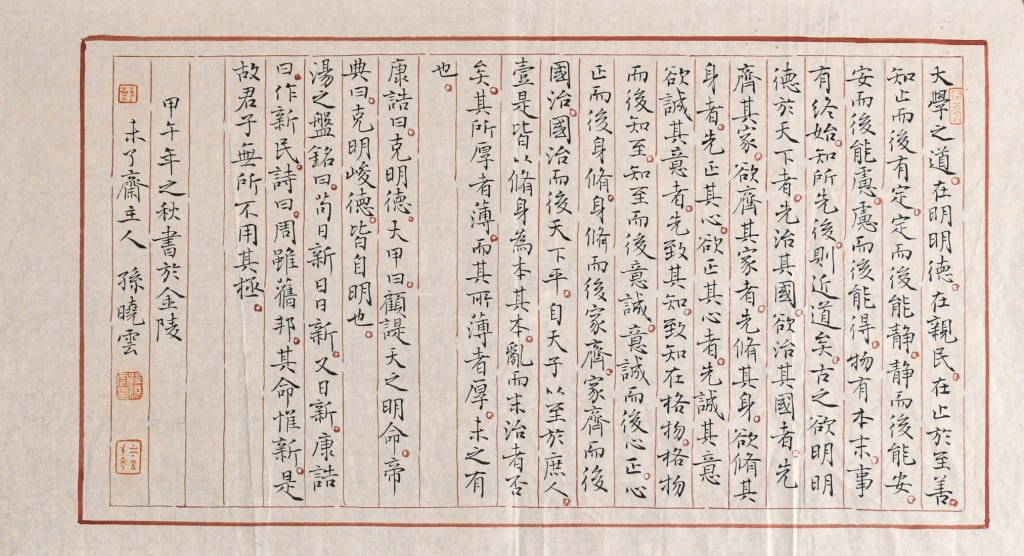 大學之道。在明明德。在親民。在止於至善。
知止而後有定。定而後能靜。靜而後能安。
安而後能慮。慮而後能得。物有本末。事
有終始。知所先後。則近道矣。古之欲明明
德於天下者。先治其國。欲治其國者。先
齊其家。欲齊其家者。先脩其身。欲脩其
身者。先正其心。欲正其心者。先誠其意
欲誠其意者。先致其知。致知在格物。格物
而後知至。知至而後意誠。意誠而後心正。心
正而後身脩。身脩而後家齊。家齊而後
國治。國治而後天下平。自天子以至於庶人。
壹是皆以脩身為本。其本亂而末治者否
矣。其所厚者薄。而其所薄者厚。未之有
也。
康誥曰。克明德。大甲曰。顧諟天之明命。帝
典曰。克明峻德。皆自明也。
湯之盤銘曰。苟日新。日日新。又日新。康誥
曰。作新民。詩曰。周雖舊邦。其命惟新。是
故君子無所不用其極。
甲午年之秋書於金陵
未了齋主人 孫曉雲